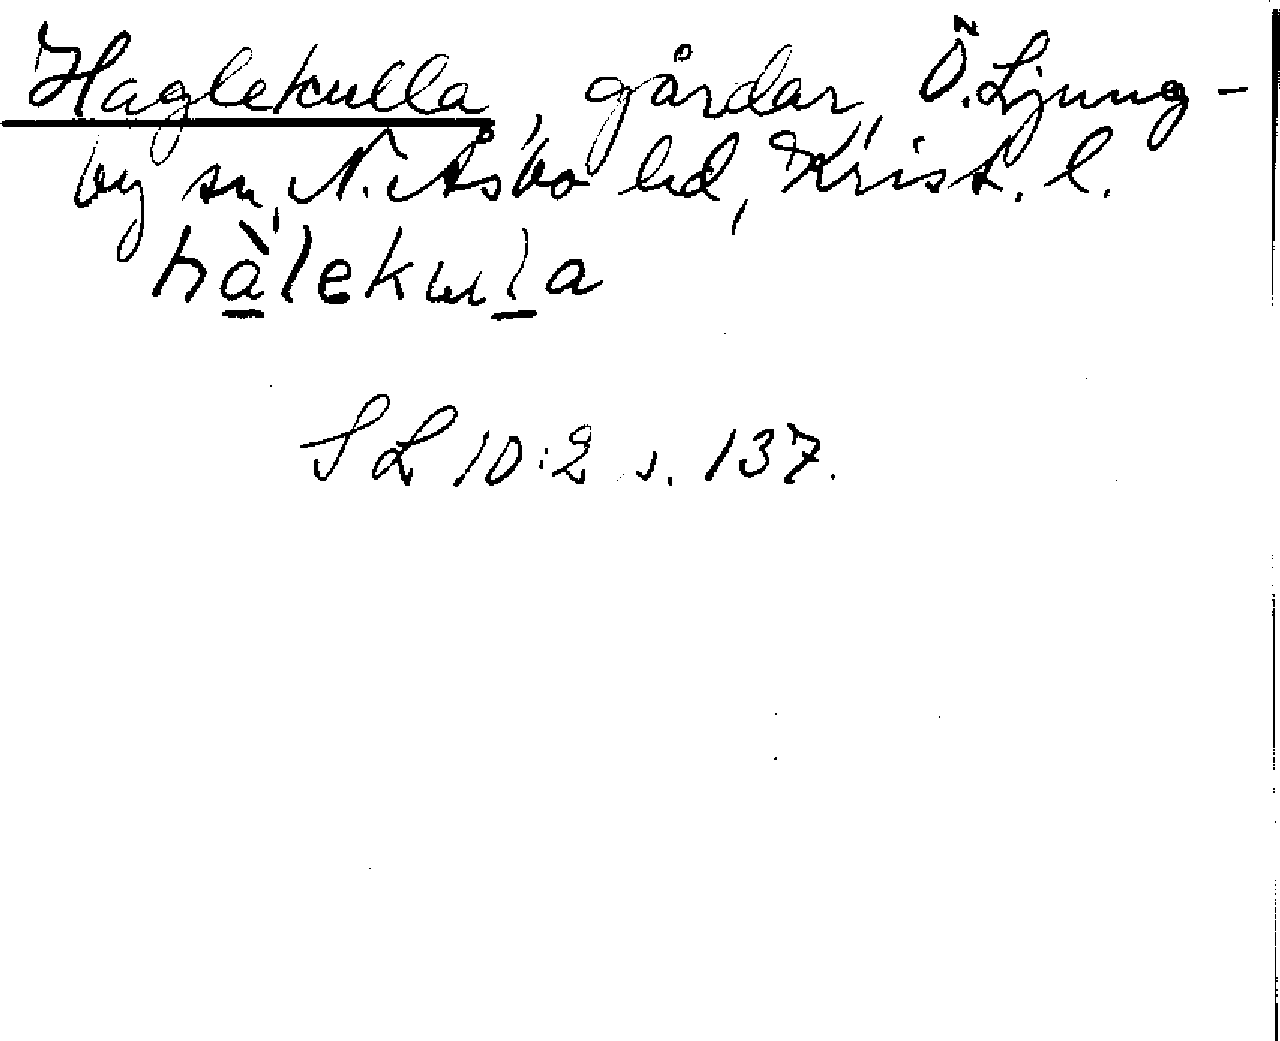 Haglekulla, gårdar, Ö. Ljung-
by sn, N. Åsbo hd, Krist. l.
hàlekula
SL 10:2 s. 137.